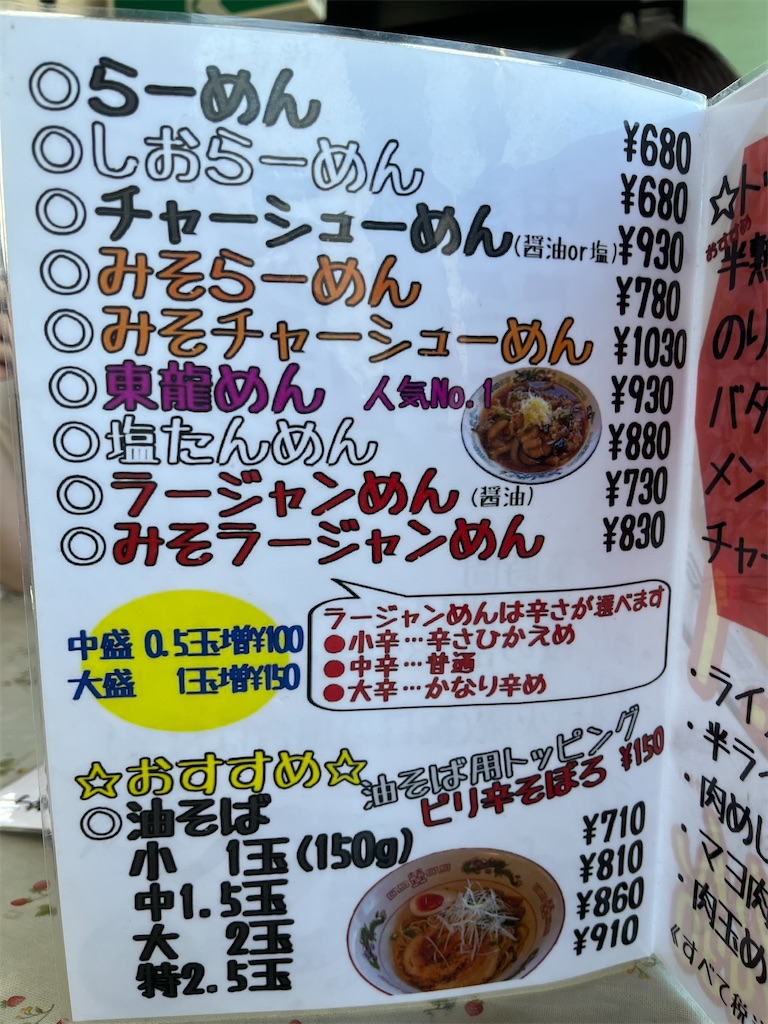 ◎らーめん ¥680
◎しおらーめん ¥680
◎チャーシューめん(醤油or塩) ¥930
◎みそらーめん ¥780
◎みそチャーシューめん ¥1030
◎東龍めん 人気No.1 ¥930
◎塩たんめん ¥880
◎ラージャンめん(醤油) ¥730
◎みそラージャンめん ¥830
中盛 0.5玉増¥100
大盛 1玉増¥150
ラージャンめんは辛さが選べます
●小辛…辛さひかえめ
●中辛…普通
●大辛…かなり辛め
☆おすすめ☆
油そば用トッピング
ピリ辛そぼろ ¥150
◎油そば
小 1玉(150g) ¥710
中1.5玉 ¥810
大 2玉 ¥860
特2.5玉 ¥910
☆ト
おすすめ
半熟
のり
バタ
メン
チャー
・ライ
・半ラ
・肉めし
・マヨ肉
・肉玉め
《すべて税